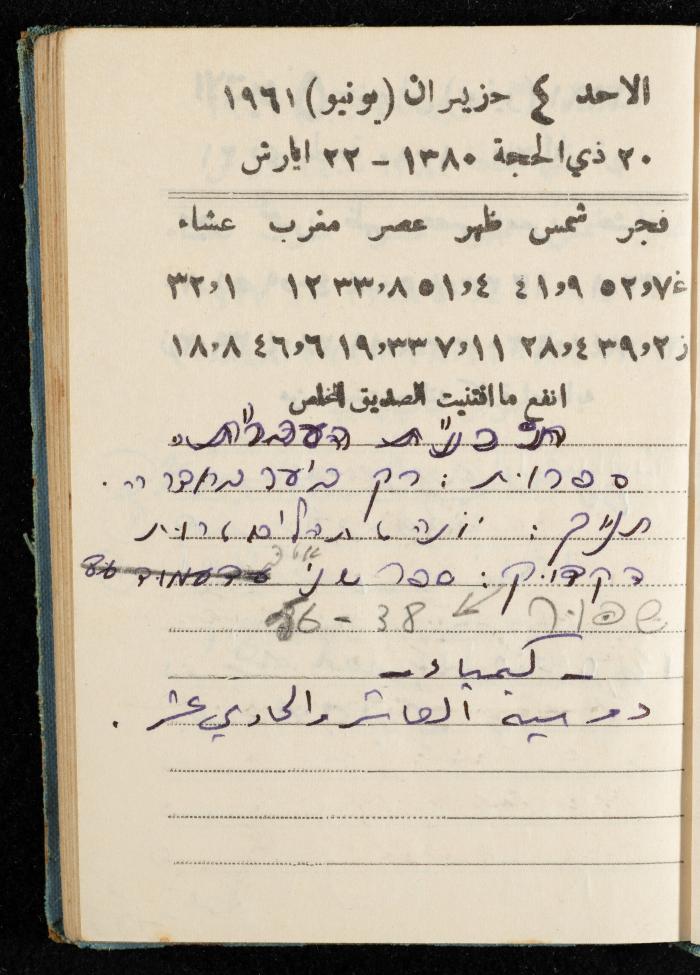 الاحد ٤ حزيران (يونيو) ١٩٦١
٢٠ ذي الحجة ١٣٨٠ – ٢٢ ايارش
فجر شمس ظهر عصر مغرب عشاء
غ ٧و٥٢ ٩و٤١ ٤و٥١ ٨و٣٣ ١٢ ١و٣٢
ز ٢و٣٩ ٤و٢٨ ١١و٧ ٣٣و١٩ ٦و٤٦ ٨و١٨
انفع ما اقتنيت الصديق المخلص
העברית
ספרות : רק ביעד
תנ״ך : יונה + תהלים + רות
דקדוק : ספר שני
שפור 38 – 86
– كيمياء –
دوسية العاشر والحادي عشر .